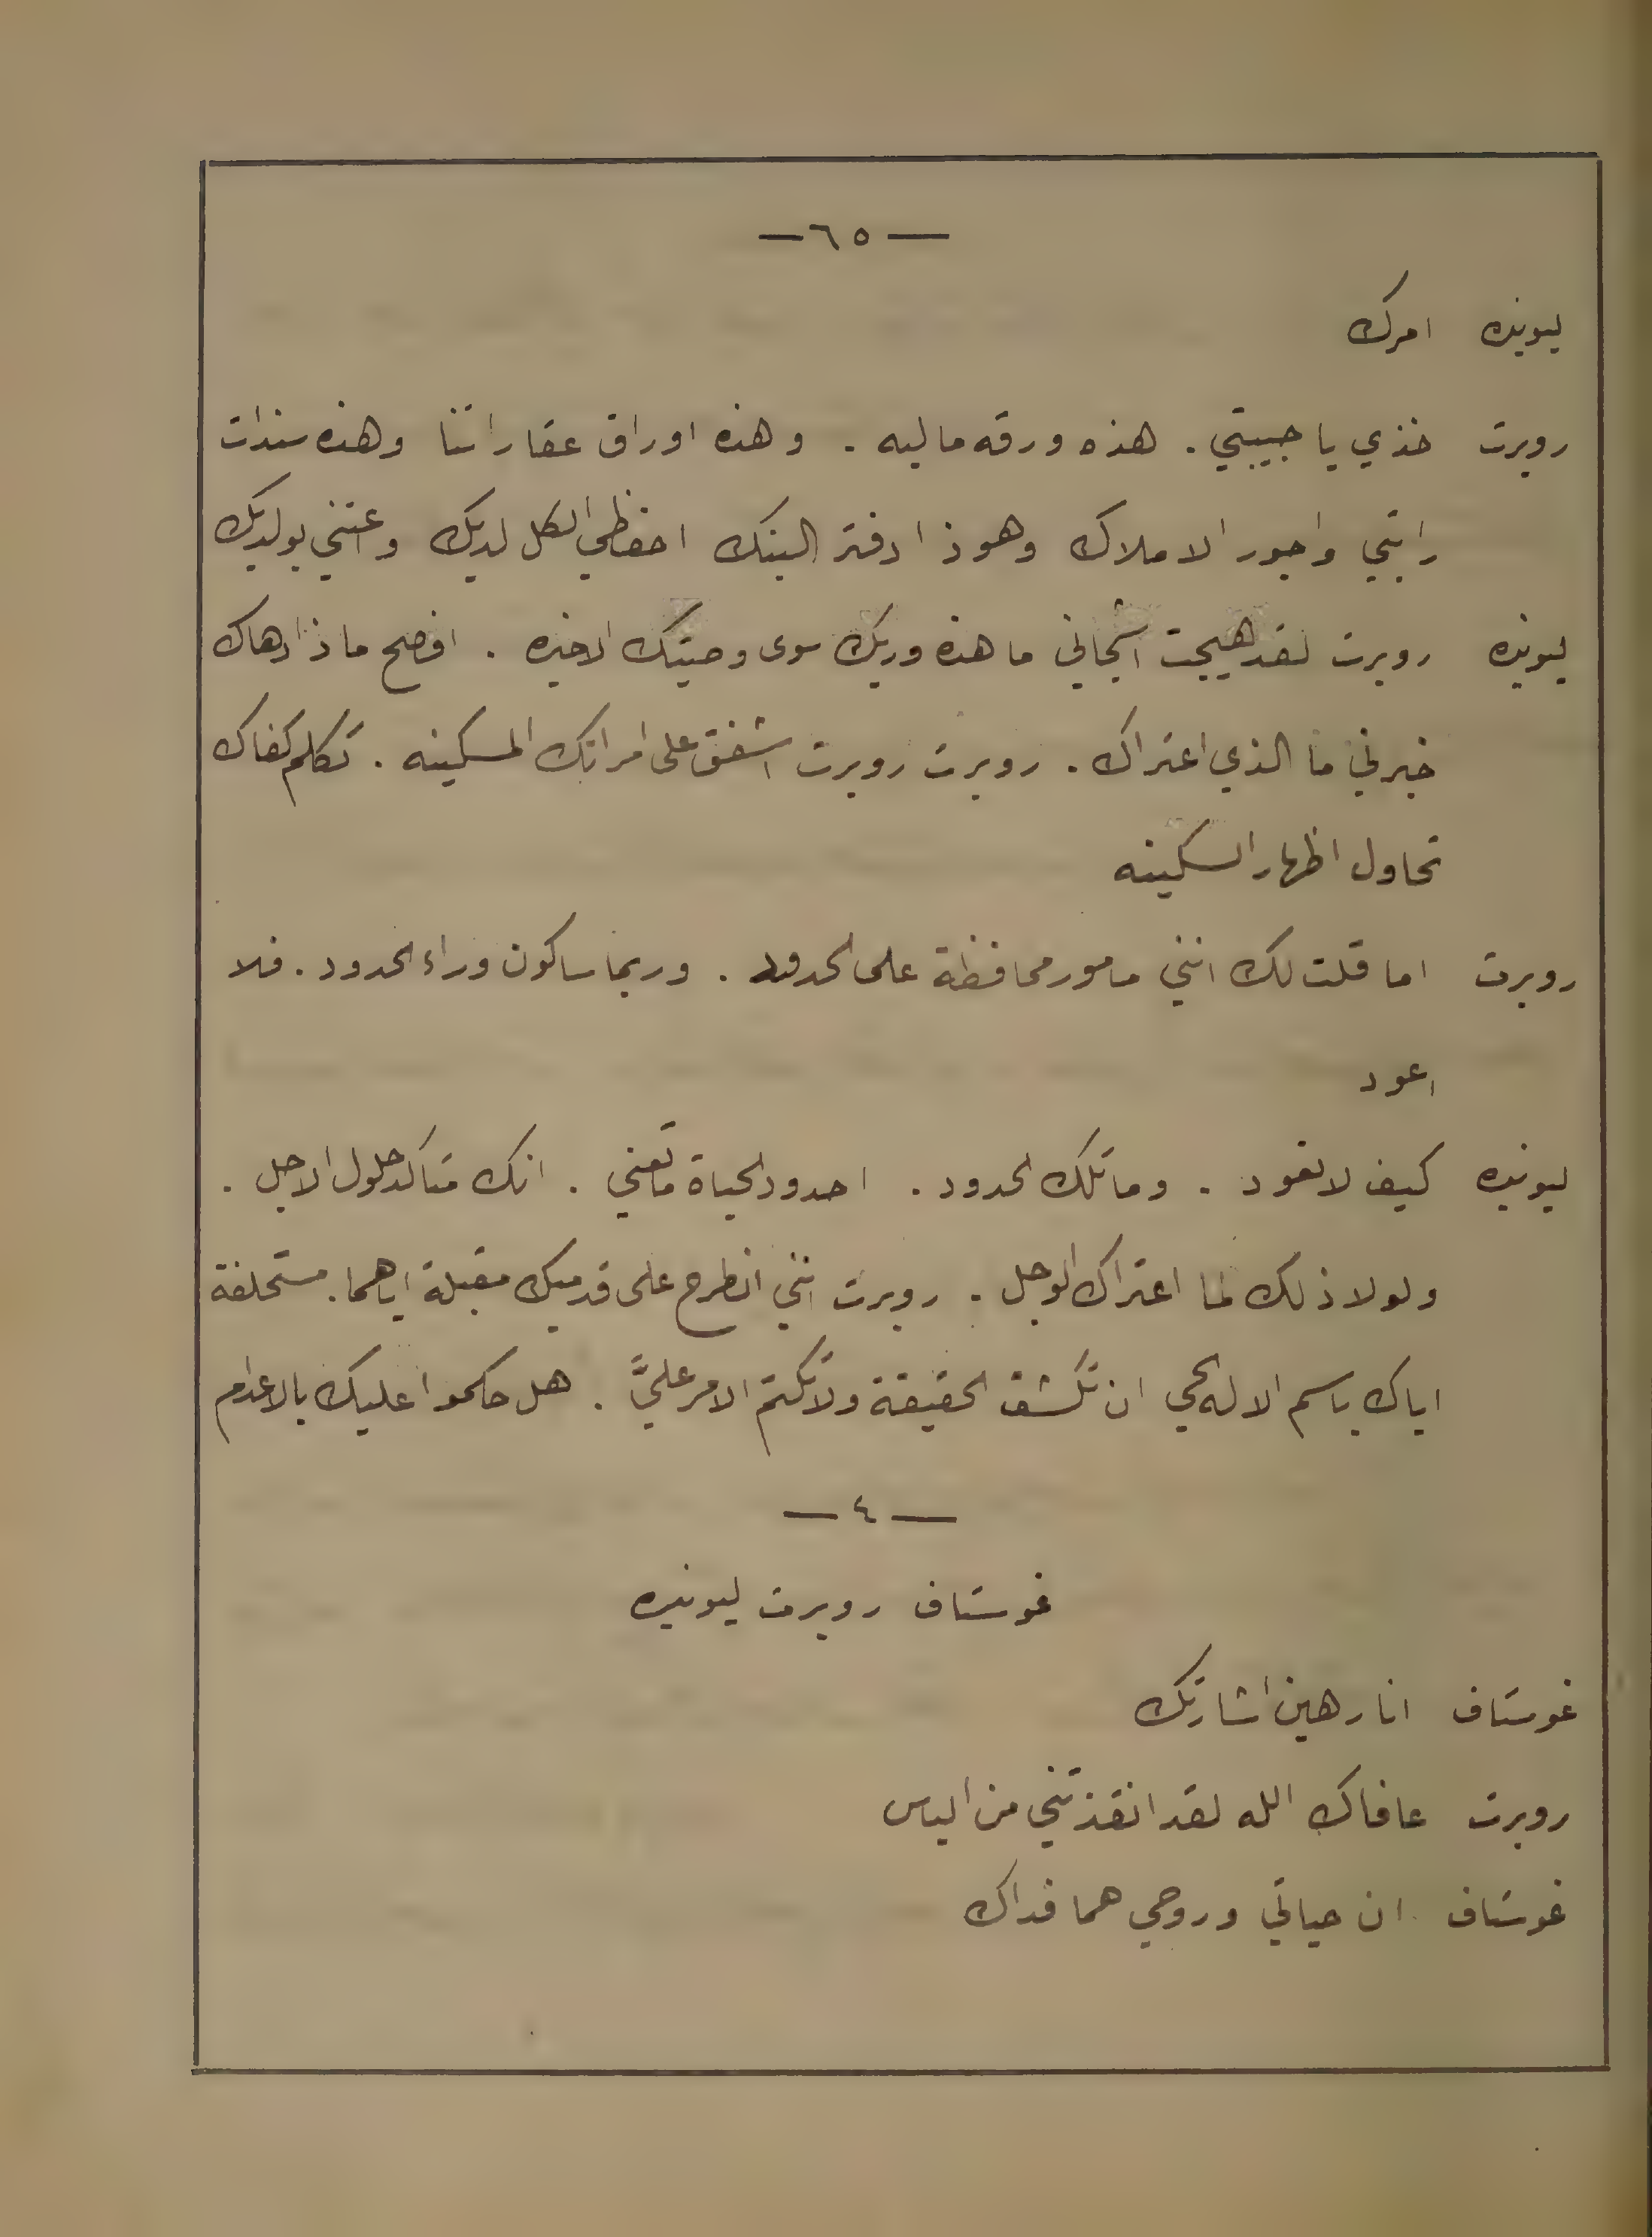 — ٦٥ —
ليونيره امرك
روبرت خذي يا حبيبتي . هذه ورقه ماليه . وهذه اوراق عقاراتنا وهذه سندات
راتبي واجور الاملاك وهوذا دفتر البنك احفظي الكل لديك واعتني بولديك
ليونيره روبرت لقد هيجت اشجاني ما هذه وربك سوى وصيتك الاخيره . افصح ماذا دهاك
خبرني ما الذي اعتراك . روبرت روبرت اشفق على امراتك المسكينه . تكلم كفاك
تحاول اظهار السكينه
روبرت اما قلت لك انني مامور محافظة على الحدود . وربما ساكون وراء الحدود . فلا
اعود
ليونيره كيف لا تعود . وما تلك الحدود . احدود الحياة تعني . انك متاكد حلول الاجل .
ولولا ذلك لما اعتراك الوجل . روبرت انني انطرح على قدميك مقبلة اياهما . مستحلفة
اياك باسم الاله الحي ان تكشف الحقيقة ولا تكتم الامر عليَّ . هل حكموا عليك بالاعدام
— ٤ —
غوستاف روبرت ليونيره
غوستاف انا رهين اشارتك
روبرت عافاك الله لقد انقذتني من الياس
غوستاف ان حياتي وروحي هما فداك